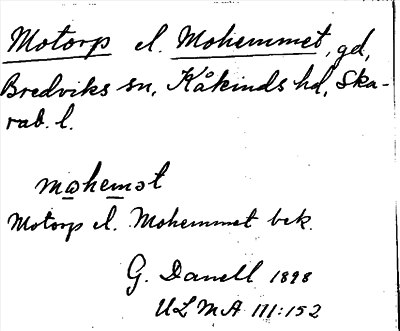 Motorp el. Mohemmet, gd,
Bredviks sn, Kåkinds hd, Ska-
rab. l.
mɷhemət
Motorp el. Mohemmet bek.
G. Danell 1898
ULMA 111:152